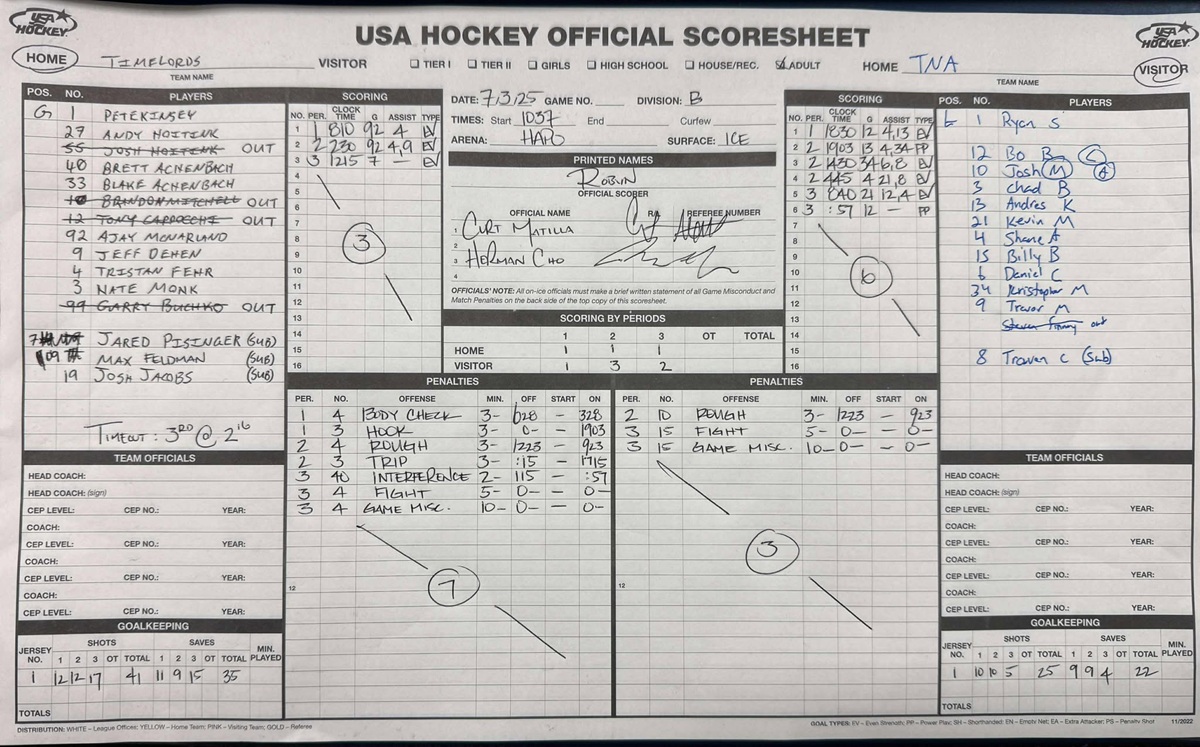 USA HOCKEY
USA HOCKEY OFFICIAL SCORESHEET
USA HOCKEY
HOME TIMELORDS VISITOR ☐ TIER I ☐ TIER II ☐ GIRLS ☐ HIGH SCHOOL ☐ HOUSE/REC. ☑ ADULT HOME TNA VISITOR
TEAM NAME
TEAM NAME
POS. NO. PLAYERS
G 1 PETE KINSEY
27 ANDY HOITINK
55 JOSH HOITENK OUT
40 BRETT ACHENBACH
33 BLAKE ACHENBACH
10 BRINDON MITCHELL OUT
12 TONY CARDOCCHI OUT
92 AJAY MCNARLAND
9 JEFF DEHEN
4 TRISTAN FEHR
3 NATE MONK
99 GARRY BUCHKO OUT
7 JARED PISINGER (SUB)
09 MAX FELDMAN (SUB)
19 JOSH JACOBS (SUB)
TIMEOUT: 3RD @ 2 16
SCORING
NO. PER. CLOCK TIME G ASSIST TYPE
1 1 810 92 4 EV
2 2 230 92 4,9 EV
3 3 1215 7 — EV
4
5
6
7
8
9
10
11
12
13
14
15
16
3
DATE: 7.3.25 GAME NO. DIVISION: B
TIMES: Start 1037 End Curfew
ARENA: HAPO SURFACE: ICE
PRINTED NAMES
ROBIN
OFFICIAL SCORER
OFFICIAL NAME REFEREE NUMBER
1 CURT MATILLA
2
3 HERMAN CHO
4
OFFICIALS' NOTE: All on-ice officials must make a brief written statement of all Game Misconduct and
Match Penalties on the back side of the top copy of this scoresheet.
SCORING BY PERIODS
1 2 3 OT TOTAL
HOME 1 1 1
VISITOR 1 3 2
SCORING
NO. PER. CLOCK TIME G ASSIST TYPE
1 1 1830 12 4,13 EV
2 2 1903 13 4,34 PP
3 2 1430 34 6,8 EV
4 2 445 4 21,8 EV
5 3 840 21 12,4 EV
6 3 :57 12 — PP
7
8
9
10
11
12
13
14
15
16
6
POS. NO. PLAYERS
G 1 Ryan S
12 Bo B C
10 Josh M A
3 Chad B
13 Andres K
21 Kevin M
4 Shane A
15 Billy B
6 Daniel C
34 Kristopher M
9 Trevor M
out
8 Traven C (Sub)
PENALTIES
PER. NO. OFFENSE MIN. OFF START ON
1 4 BODY CHECK 3- 628 — 328
1 3 HOOK 3- 0- — 1903
2 4 ROUGH 3- 1223 — 923
2 3 TRIP 3- :15 — 1715
3 40 INTERFERENCE 2- 115 — :57
3 4 FIGHT 5- 0- — 0-
3 4 GAME MISC. 10- 0- — 0-
12
7
PENALTIES
PER. NO. OFFENSE MIN. OFF START ON
2 10 ROUGH 3- 1223 — 923
3 15 FIGHT 5- 0- — 0-
3 15 GAME MISC. 10- 0- — 0-
12
3
TEAM OFFICIALS
HEAD COACH:
HEAD COACH: (sign)
CEP LEVEL: CEP NO.: YEAR:
COACH:
CEP LEVEL: CEP NO.: YEAR:
COACH:
CEP LEVEL: CEP NO.: YEAR:
COACH:
CEP LEVEL: CEP NO.: YEAR:
GOALKEEPING
JERSEY NO. SHOTS SAVES MIN. PLAYED
1 2 3 OT TOTAL 1 2 3 OT TOTAL
1 12 12 17 41 11 9 15 35
TOTALS
TEAM OFFICIALS
HEAD COACH:
HEAD COACH: (sign)
CEP LEVEL: CEP NO.: YEAR:
COACH:
CEP LEVEL: CEP NO.: YEAR:
COACH:
CEP LEVEL: CEP NO.: YEAR:
COACH:
CEP LEVEL: CEP NO.: YEAR:
GOALKEEPING
JERSEY NO. SHOTS SAVES MIN. PLAYED
1 2 3 OT TOTAL 1 2 3 OT TOTAL
1 10 10 5 25 9 9 4 22
TOTALS
DISTRIBUTION: WHITE – League Offices; YELLOW – Home Team; PINK – Visiting Team; GOLD – Referee
GOAL TYPES: EV – Even Strength; PP – Power Play; SH – Shorthanded; EN – Empty Net; EA – Extra Attacker; PS – Penalty Shot 11/2022